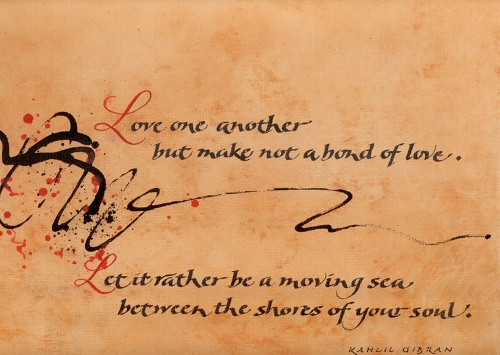 Love one another
but make not a bond of love.
Let it rather be a moving sea
between the shores of your soul.
KAHLIL GIBRAN